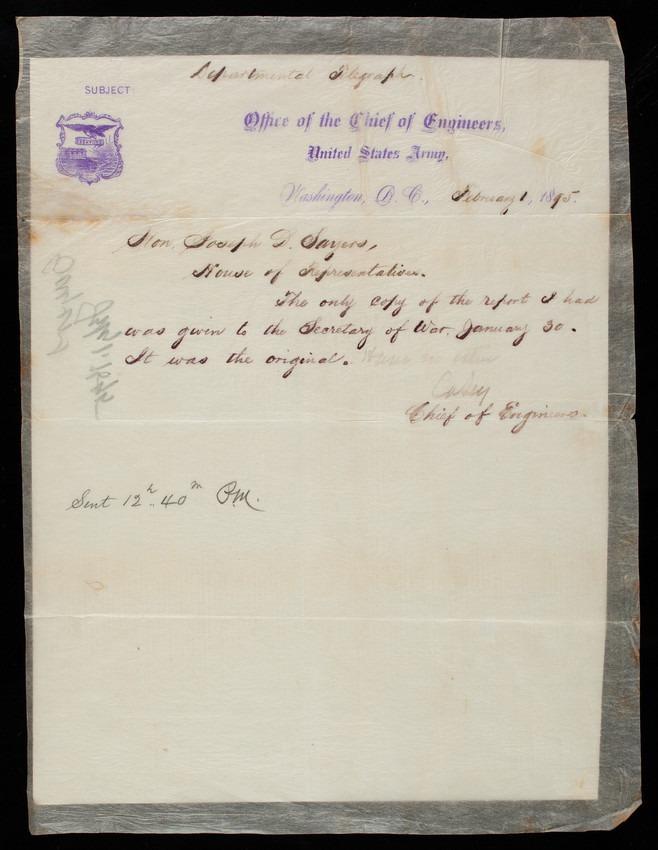 Departmental Telegraph.
SUBJECT
Office of the Chief of Engineers,
United States Army,
Washington, D. C., February 1, 1895.
Hon. Joseph D. Sayers,
House of Representatives.
The only copy of the report I had
was given to the Secretary of War, January 30.
It was the original. Have no other
Casey
Chief of Engineers.
Sent 12h.. 40m P.M.